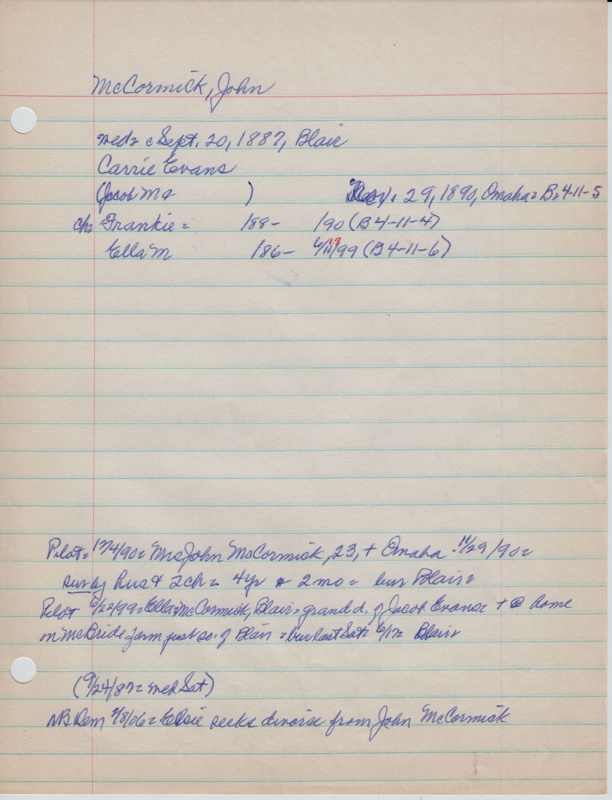 McCormick, John
med= c Sept. 20, 1887, Blair
Carrie Evans
(Jacob M &      )      Nov. 29, 1890, Omaha= B=4-11-5
ch= Frankie=   188-   /90 (B 4-11-4)
Ella M   186-   6/17/99 (B4-11-6)
Pilot= 12/4/90= Mrs John McCormick, 23, + Omaha 11/29/90=
surv by hus & 2 ch= 4 yr & 2 mo= bur Blair=
Pilot 6/22/99= Ella McCormick, Blair= grand d. of Jacob Evans= + @ home
on McBride farm just so. of Blair= bur last Sat= 6/17= Blair=
(9/24/87= wed Sat)
Dem 9/8/06= Elsie seeks divorce from John McCormick